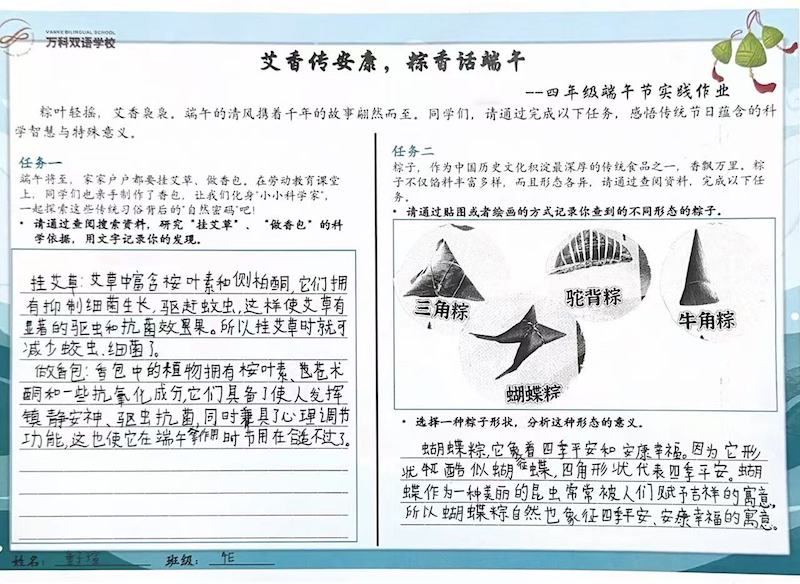 VANKE BILINGUAL SCHOOL
万科双语学校
艾香传安康，粽香话端午
--四年级端午节实践作业
粽叶轻摇，艾香袅袅。端午的清风携着千年的故事翩然而至。同学们，请通过完成以下任务，感悟传统节日蕴含的科
学智慧与特殊意义。
任务一
端午将至，家家户户都要挂艾草、做香包。在劳动教育课堂
上，同学们也亲手制作了香包，让我们化身"小小科学家"，
一起探索这些传统习俗背后的"自然密码"吧！
• 请通过查阅搜索资料，研究"挂艾草"、"做香包"的科
学依据，用文字记录你的发现。
挂艾草：艾草中富含桉叶素和侧柏酮，它们拥
有抑制细菌生长，驱赶蚊虫，这样使艾草有
显著的驱虫和抗菌效果。所以挂艾草时就可
减少蚊虫、细菌了。
做香包：香包中的植物拥有桉叶素、苍术
酮和一些抗氧化成分，它们具备了使人发挥
镇静安神、驱虫抗菌，同时兼具了心理调节
功能，这也使它在端午时节用在合适不过了。
任务二
粽子，作为中国历史文化积淀最深厚的传统食品之一，香飘万里。粽
子不仅馅料丰富多样，而且形态各异，请通过查阅资料，完成以下任
务。
• 请通过贴图或者绘画的方式记录你查到的不同形态的粽子。
三角粽
驼背粽
牛角粽
蝴蝶粽
• 选择一种粽子形状，分析这种形态的意义。
蝴蝶粽，它象着四季平安和安康幸福。因为它形
状酷似蝴蝶，四角形状代表四季平安。蝴
蝶作为一种美丽的昆虫常常被人们赋予吉祥的寓意，
所以蝴蝶粽自然也象征四季平安、安康幸福的寓意。
姓名：
班级：4E